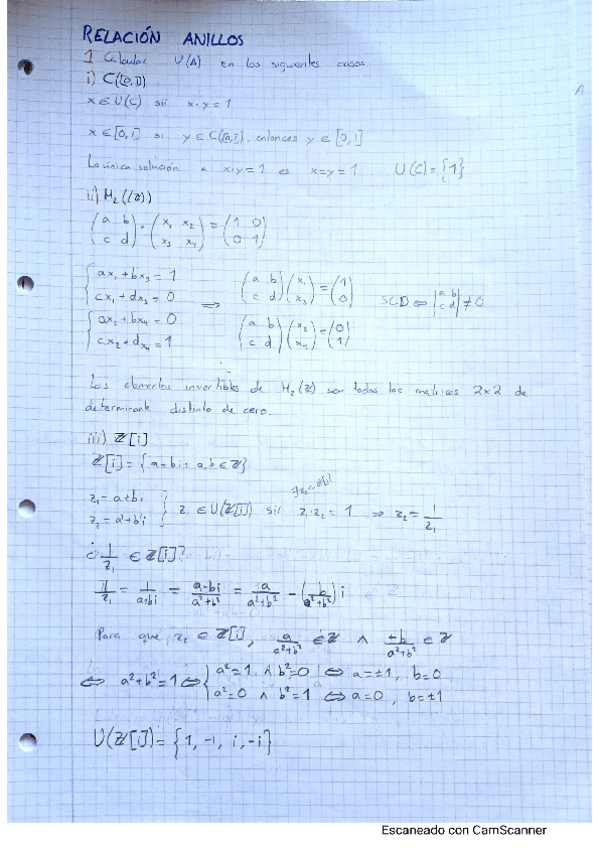 RELACIÓN ANILLOS
1 Calcular U(A) en los siguientes casos
i) C([0,1])
x ∈ U(C) sii x·y = 1
x ∈ [0,1] si y ∈ C([0,1]), entonces y ∈ [0,1]
La única solución a x·y = 1 es x=y=1 U(C)={1}
ii) M₂((ℤ))
(a b; c d)·(x₁ x₂; x₃ x₄) = (1 0; 0 1)
{ax₁+bx₃=1
cx₁+dx₃=0 ⇒ (a b; c d)(x₁; x₃)=(1; 0) SCD ⇔ |a b; c d| ≠ 0
{ax₂+bx₄=0
cx₂+dx₄=1 (a b; c d)(x₂; x₄)=(0; 1)
Los elementos invertibles de M₂(ℤ) son todas las matrices 2x2 de
determinante distinto de cero.
iii) ℤ[i]
ℤ[i]={a+bi: a,b ∈ ℤ}
z₁=a+bi
z₂=a'+b'i } z₁ ∈ U(ℤ[i]) sii ∃z₂∈ℤ[i] z₁·z₂=1 ⇒ z₂=1/z₁
¿1/z₁ ∈ ℤ[i]?
1/z₁ = 1/(a+bi) = (a-bi)/(a²+b²) = a/(a²+b²) - (b/(a²+b²))i
Para que z₂ ∈ ℤ[i], a/(a²+b²) ∈ ℤ ∧ -b/(a²+b²) ∈ ℤ
⇔ a²+b²=1 ⇔ {a²=1 ∧ b²=0 ⇔ a=±1, b=0
a²=0 ∧ b²=1 ⇔ a=0, b=±1
U(ℤ[i])={1,-1,i,-i}
Escaneado con CamScanner